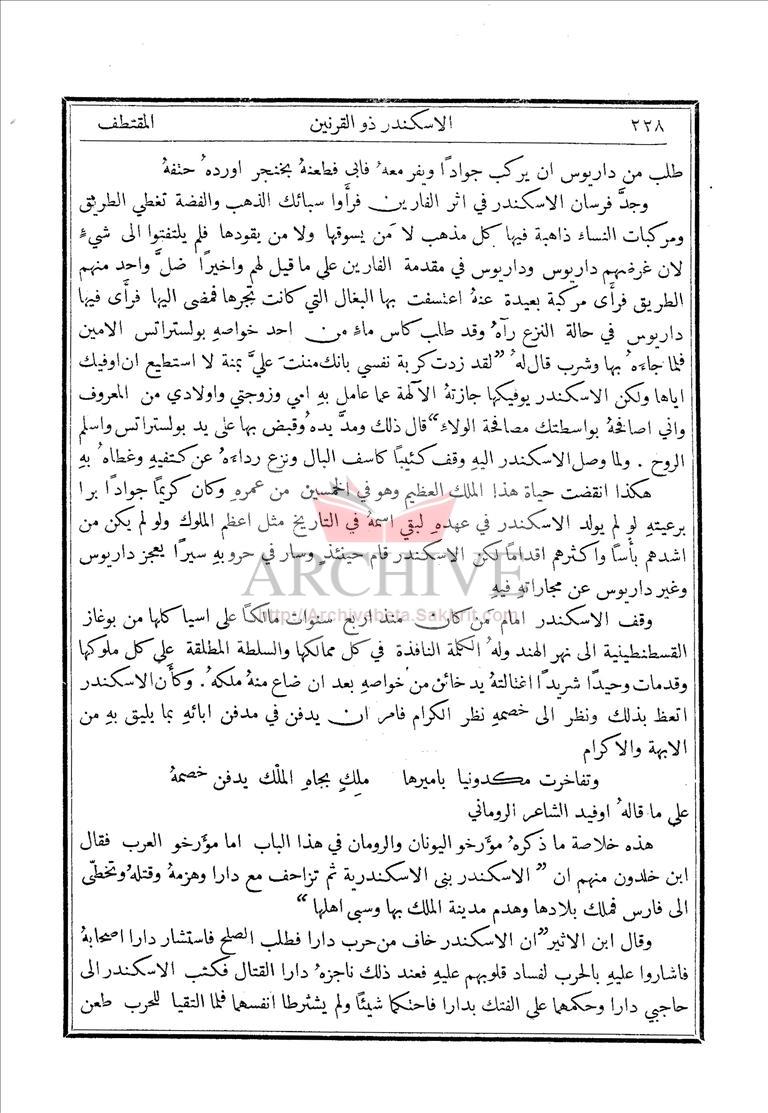 ٢٢٨ الاسكندر ذو القرنين المقتطف
طلب من داريوس ان يركب جوادًا ويفر معهُ فابى فطعنهُ بخنجر اوردهُ حتفهُ
وجدَّ فرسان الاسكندر في اثر الفارين فرأوا سبائك الذهب والفضة تغطي الطريق
ومركبات النساء ذاهبة فيها كل مذهب لا مَن يسوقها ولا من يقودها فلم يلتفتوا الى شيءٍ
لان غرضهم داريوس وداريوس في مقدمة الفارين على ما قيل لهم واخيرًا ضلَّ واحد منهم
الطريق فرأى مركبة بعيدة عنهُ اعتسفت بها البغال التي كانت تجرها فمضى اليها فرأى فيها
داريوس في حالة النزع رآهُ وقد طلب كاس ماءٍ من احد خواصهِ بولستراتس الامين
فلما جاءَهُ بها وشرب قال لهُ ”لقد زدت كربة نفسي بانك مننت عليَّ بمنة لا استطيع ان اوفيك
اياها ولكن الاسكندر يوفيكها جازتهُ الآلهة عما عامل بهِ امي وزوجتي واولادي من المعروف
واني اصافحهُ بواسطتك مصافحة الولاء“ قال ذلك ومدَّ يدهُ وقبض بها على يد بولستراتس واسلم
الروح . ولما وصل الاسكندر اليهِ وقف كئيبًا كاسف البال ونزع رداءَهُ عن كتفيهِ وغطاهُ بهِ
هكذا انقضت حياة هذا الملك العظيم وهو في الخمسين من عمرهِ وكان كريمًا جوادًا برا
برعيتهِ لو لم يولد الاسكندر في عهدهِ لبقي اسمهُ في التاريخ مثل اعظم الملوك ولو لم يكن من
اشدهم بأسًا واكثرهم اقدامًا لكن الاسكندر قام حينئذٍ وسار في حروبهِ سيرًا يعجز داريوس
وغير داريوس عن مجاراتهِ فيهِ
ARCHIVE
http://Archivebeta.Sakhrit.com
وقف الاسكندر امام من كان منذ اربع سنوات مالكًا على اسيا كلها من بوغاز
القسطنطينية الى نهر الهند ولهُ الكلمة النافذة في كل ممالكها والسلطة المطلقة على كل ملوكها
وقد مات وحيدًا شريدًا اغتالتهُ يد خائن من خواصهِ بعد ان ضاع منهُ ملكهُ . وكأن الاسكندر
اتعظ بذلك ونظر الى خصمهِ نظر الكرام فامر ان يدفن في مدفن ابائهِ بما يليق بهِ من
الابهة والاكرام
وتفاخرت مكدونيا باميرها ملِكٍ بجاهِ الملْك يدفن خصمهُ
على ما قالهُ اوفيد الشاعر الروماني
هذه خلاصة ما ذكرهُ مؤرخو اليونان والرومان في هذا الباب اما مؤرخو العرب فقال
ابن خلدون منهم ان ” الاسكندر بنى الاسكندرية ثم تزاحف مع دارا وهزمهُ وقتلهُ وتخطَّى
الى فارس فملك بلادها وهدم مدينة الملك بها وسبى اهلها “
وقال ابن الاثير ”ان الاسكندر خاف من حرب دارا فطلب الصلح فاستشار دارا اصحابهُ
فاشاروا عليهِ بالحرب لفساد قلوبهم عليهِ فعند ذلك ناجزهُ دارا القتال فكتب الاسكندر الى
حاجبي دارا وحكمهما على الفتك بدارا فاحتكما شيئًا ولم يشترطا انفسهما فلما التقيا للحرب طعن